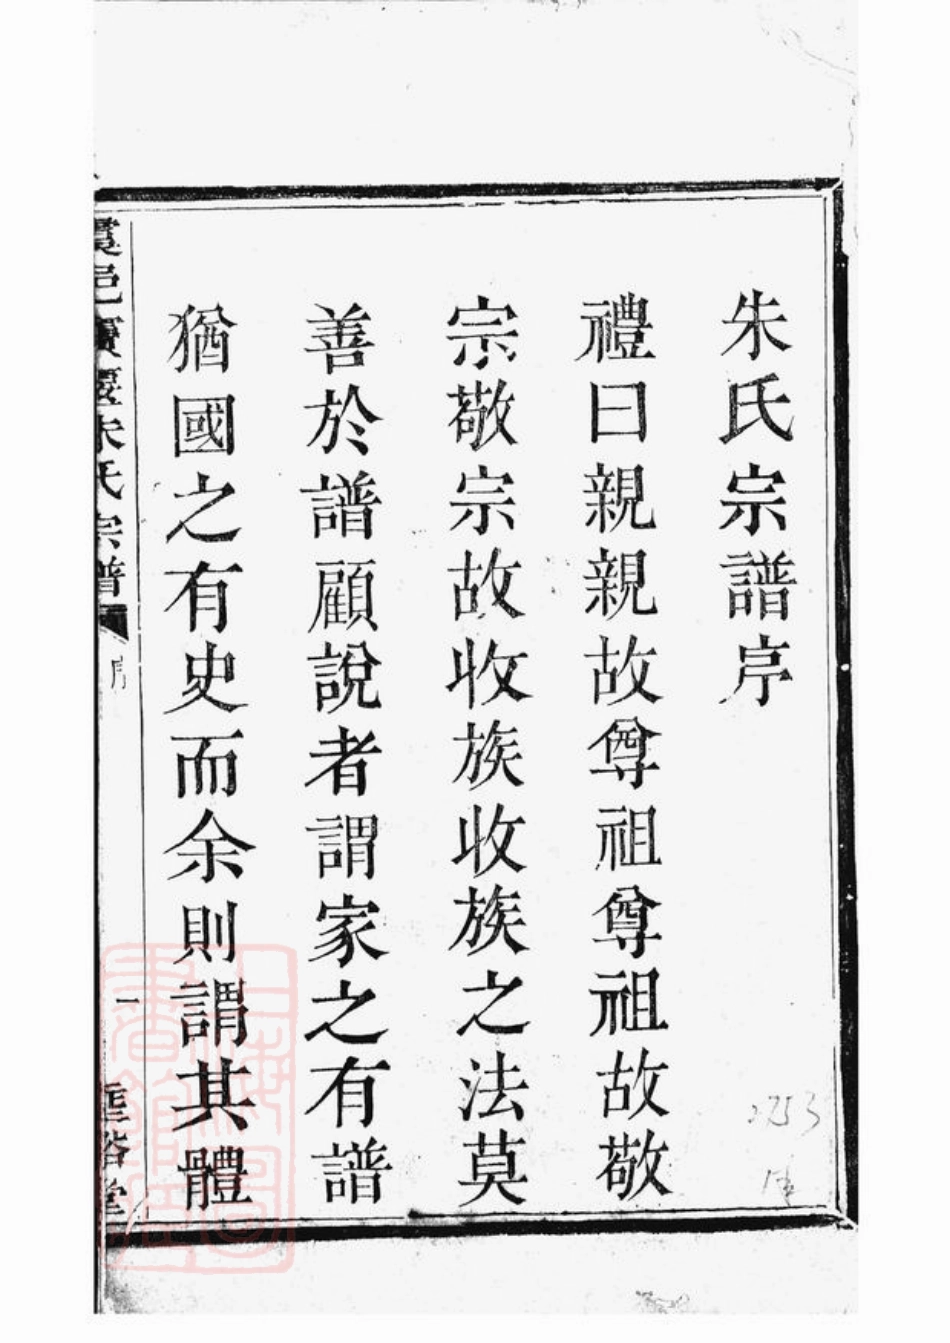 朱氏宗譜序
禮曰親親故尊祖尊祖故敬
宗敬宗故收族收族之法莫
善於譜顧說者謂家之有譜
猶國之有史而余則謂其體
朱氏宗譜
序
一
堂
2753
上海圖書館藏